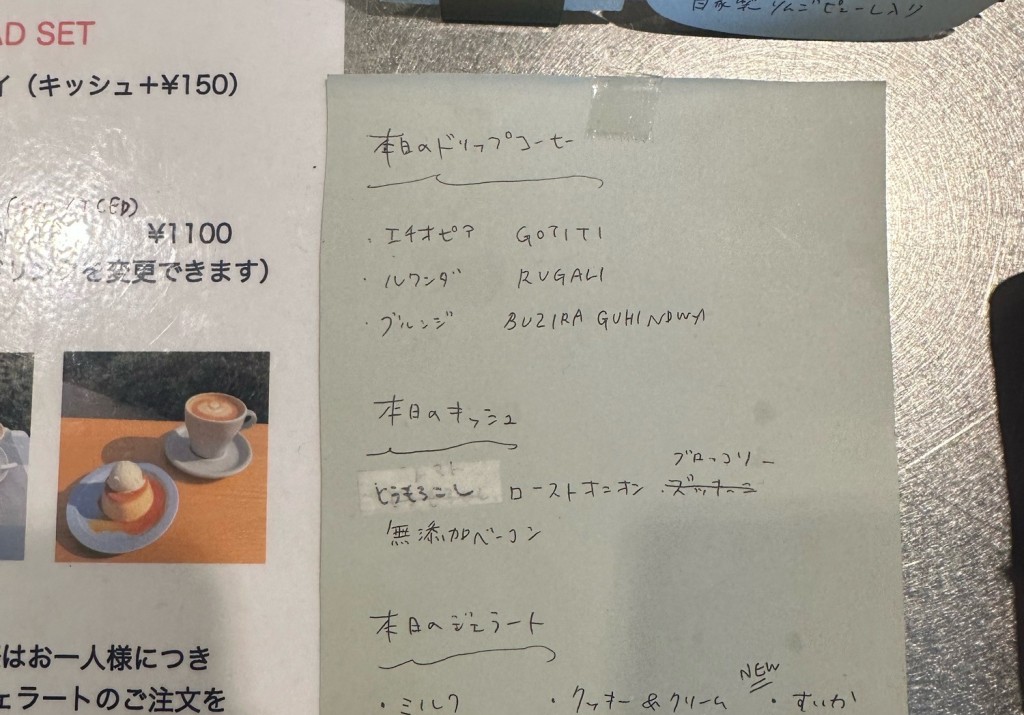 AD SET
イ（キッシュ＋¥150）
ICED)
¥1100
ドリンクを変更できます）
はお一人様につき
ェラートのご注文を
自家製りんごピューレ入り
本日のドリップコーヒー
・エチオピア GOTITI
・ルワンダ RUGALI
・ブルンジ BUZIRA GUHINDWA
本日のキッシュ
ブロッコリー
とうもろこし ローストオニオン ズッキーニ
無添加ベーコン
本日のジェラート
NEW
・ミルク ・クッキー&クリーム ・すいか